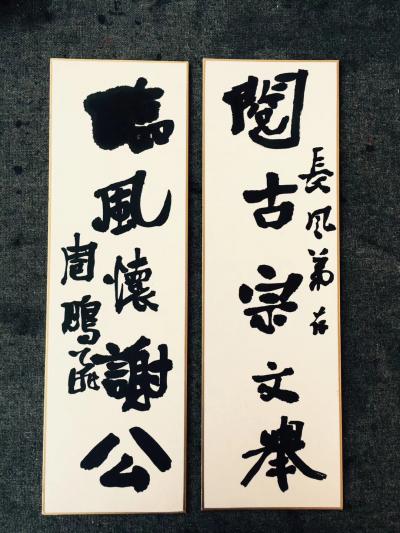 閱古宗文舉
長風弟存
臨風懷謝公
周鵬飛